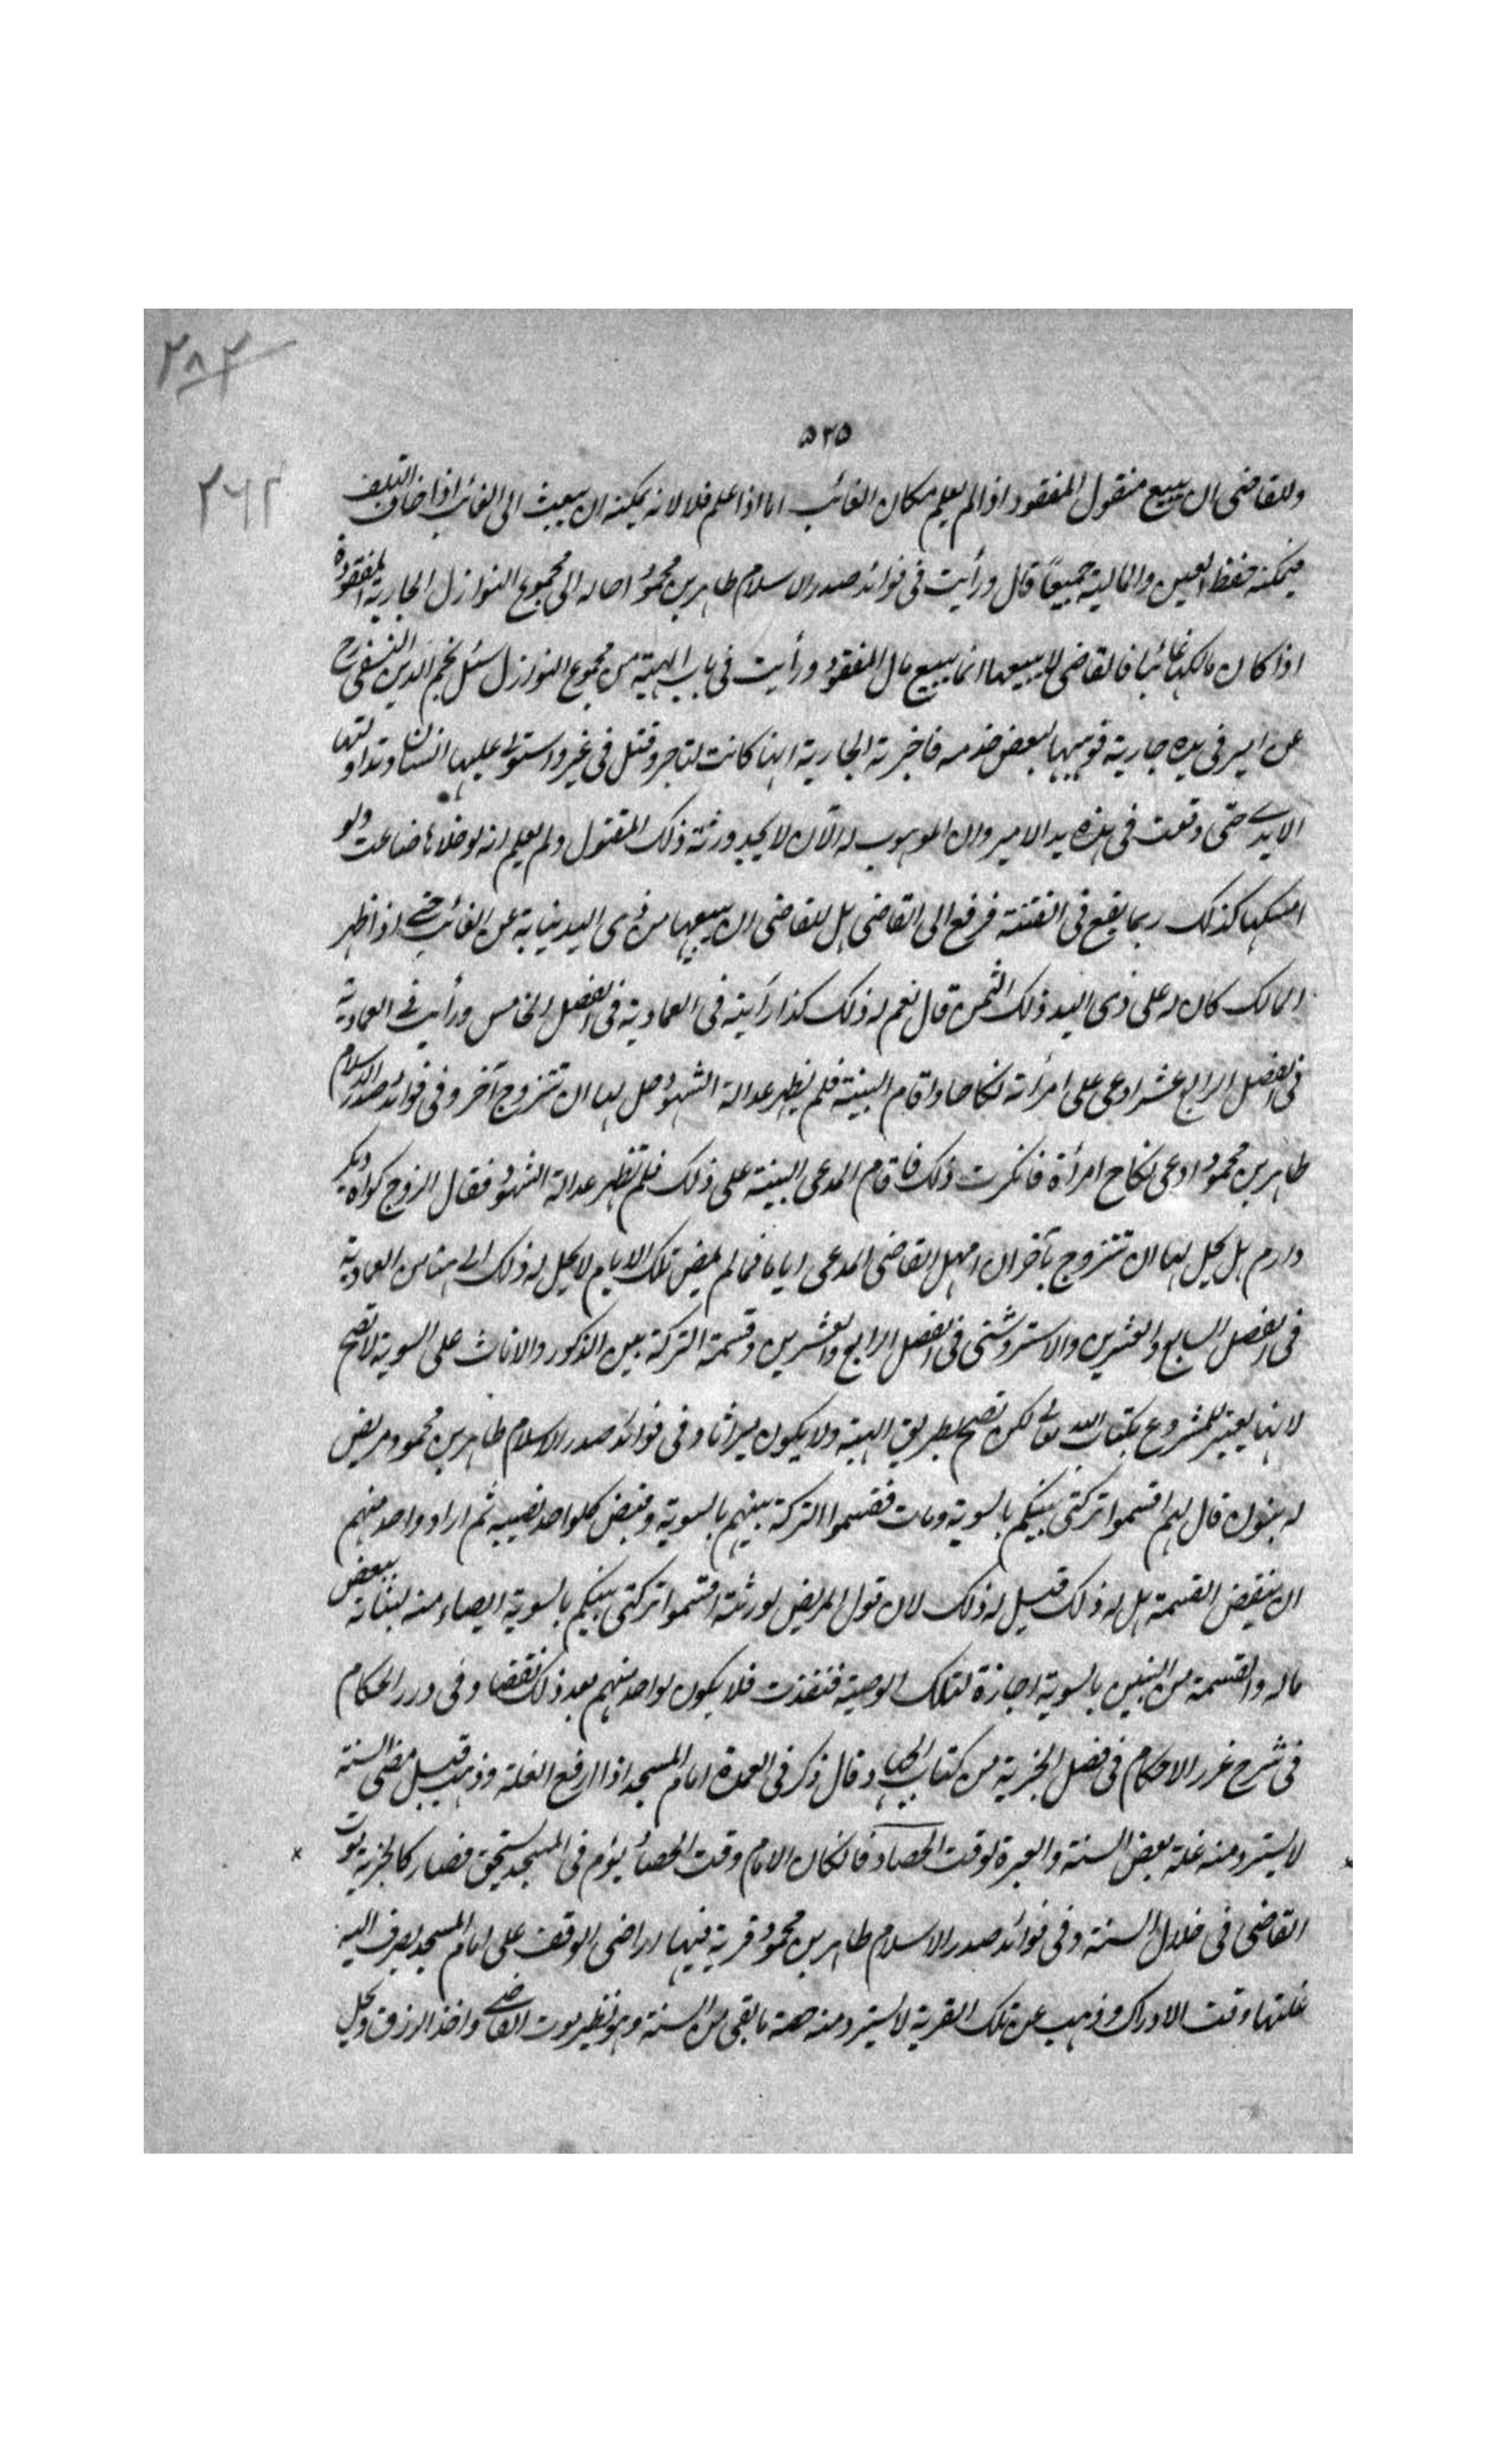 ٢٨٢
٥٢٥
٢٦٢
وللقاضى ان يبيع منقول المفقود اذا لم يعلم مكان الغائب اما اذا علم فلا لانه يمكنه ان يبعث الى الغائب اذا خاف التلف
فيمكنه حفظ العين والمالية جميعًا قال ورأيت فى فوائد صدر الاسلام طاهر بن محمود احاله الى مجموع النوازل الجارية المفقودة
اذا كان مالكها غائبا فالقاضى لا يبيعها انما يبيع مال المفقود ورأيت فى باب الهبة من مجموع النوازل سئل نجم الدين النسفى رح
عن امير فى يده جارية فوهبها لبعض خدمه فاخبرته الجارية انها كانت لتاجر وقتل فى غير واستولى عليها انسان وتداولتها
الايدى حتى وقعت فى هذه يد الامير وان الموهوب له الآن لا يجد ورثة ذلك المقتول ولم يعلم انه لو خلاها ضاعت ولو
امسكها كذلك ربما يقع فى الفتنة فرفع الى القاضى هل للقاضى ان يبيعها من ذى اليد نيابة عن الغائب حتى اذا ظهر
المالك كان له على ذى اليد ذلك الثمن قال نعم له ذلك كذا رأيته فى العمادية فى الفصل الخامس ورأيت فى العمادية
فى الفصل الرابع عشر ادعى على امرأته نكاحا واقام البينة فلم يظهر عدالة الشهود هل لها ان تتزوج آخر وفى فوائد صدر الاسلام
طاهر بن محمود ادعى نكاح امرأة فانكرت ذلك فاقام المدعى البينة على ذلك فلم تظهر عدالة الشهود فقال الزوج كواه ديكر
دارم هل يحل لها ان تتزوج بآخر ان امهل القاضى المدعى اياما فمالم يمض تلك الايام لا يحل له ذلك الى هنا من العمادية
فى الفصل السابع والعشرين والاستروشنى فى الفصل الرابع والعشرين وقسمة التركة بين الذكور والاناث على السوية لا تصح
لانها يعتبر المشروع بكتاب الله تعالى لكن تصح بطريق الهبة ولا يكون ميراثا وفى فوائد صدر الاسلام طاهر بن محمود مريض
له بنون قال لهم اقتسموا تركتى بينكم بالسوية ومات فقسموا التركة بينهم بالسوية وقبض كلواحد نصيبه ثم اراد واحد منهم
ان ينقض القسمة هل له ذلك قيل له ذلك لان قول المريض لورثته اقتسموا تركتى بينكم بالسوية ايصاء منه لبناته ببعض
ماله والقسمة من البنين بالسوية اجازة لتلك الوصية فنفذت فلا يكون لواحد منهم بعد ذلك نقضا وفى درر الحكام
فى شرح غرر الاحكام فى فصل الجزية من كتاب الجهاد قال ذكر فى العمدة امام المسجد اذا ارفع الغلة وذهب قبل مضى السنة
لا يسترد منه غلة بعض السنة والعبرة لوقت الحصاد فان كان الامام وقت الحصاد يؤم فى المسجد يستحق فصار كالجزية وموت
القاضى فى خلال السنة وفى فوائد صدر الاسلام طاهر بن محمود قرية فيها اراضى الوقف على امام المسجد يصرف اليه
غلتها وقت الادراك وذهب عن تلك القرية لا يسترد منه حصة ما بقى من السنة وهو نظير موت القاضى واخذ الرزق ويحل